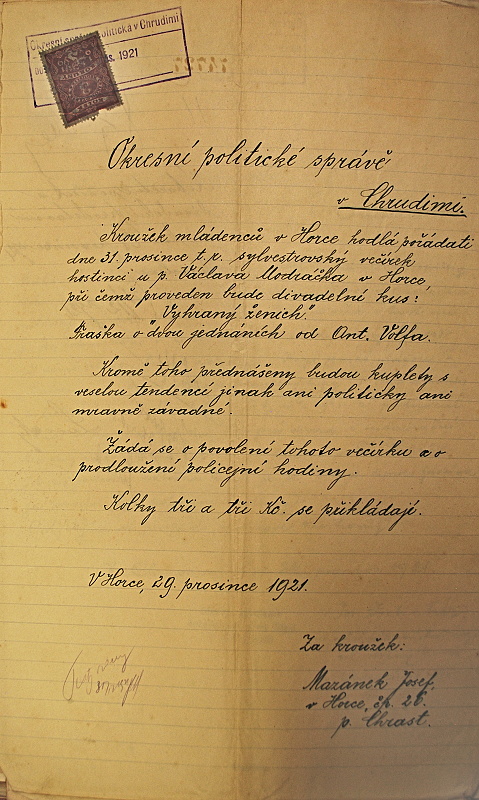 Okresní správa politická v Chrudimi
1921
Okresní politické správě
v Chrudimi.
Kroužek mládenců v Horce hodlá pořádati
dne 31. prosince t. r. sylvestrovský večírek
hostinci u p. Václava Modráčka v Horce,
při čemž proveden bude divadelní kus:
"Vyhraný ženich".
Fraška o dvou jednáních od Ant. Volfa.
Kromě toho přednášeny budou kuplety s
veselou tendencí jinak ani politicky ani
mravně závadné.
Žádá se o povolení tohoto večírku a o
prodloužení policejní hodiny.
Kolky tři a tři Kč. se přikládají.
V Horce, 29. prosince 1921.
Za kroužek:
Mazánek Josef,
v Horce, čp. 26.
p. Chrast.